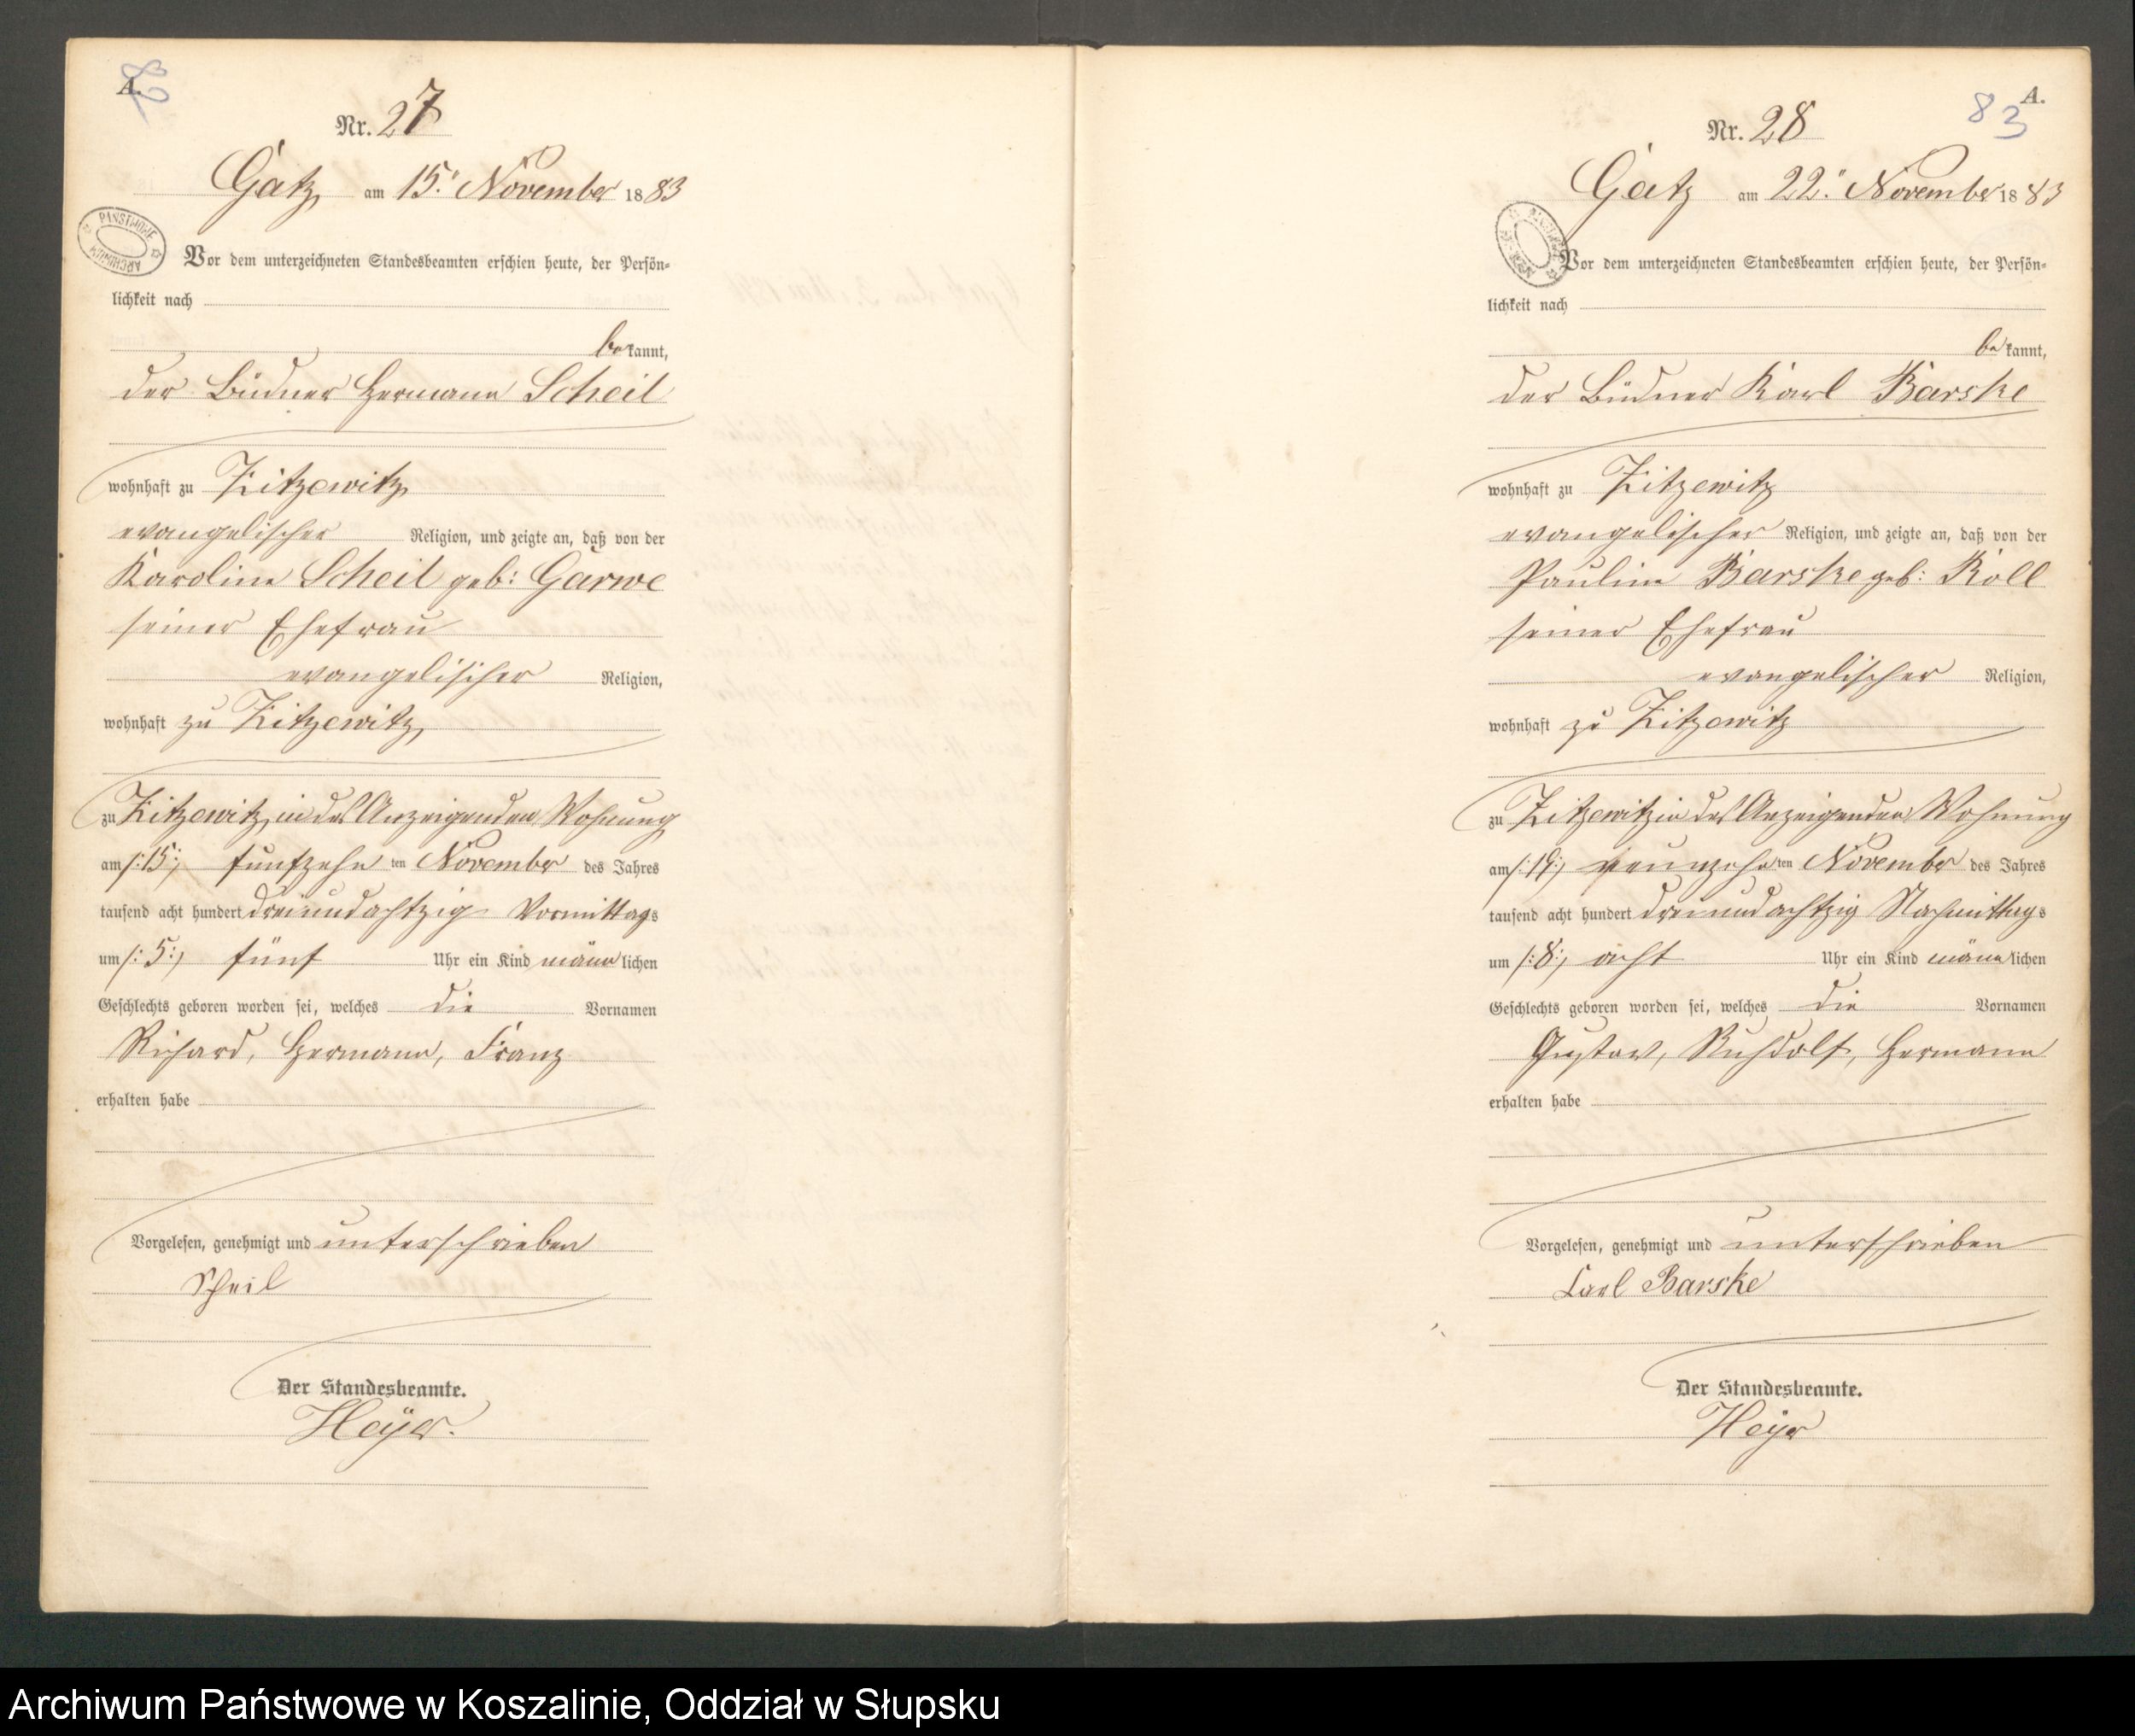 A.
Nr. 27
Gatz am 15. November 1883
PAŃSTWOWE ARCHIWUM
Vor dem unterzeichneten Standesbeamten erschien heute, der Persön-
lichkeit nach
bekannt,
der Büdner Hermann Scheil
wohnhaft zu Zitzewitz
evangelischer Religion, und zeigte an, daß von der
Karoline Scheil geb: Garwe
seiner Ehefrau
evangelischer Religion,
wohnhaft zu Zitzewitz,
zu Zitzewitz, in des Anzeigenden Wohnung
am /:15:/ fünfzehnten November des Jahres
tausend acht hundert dreiundachtzig Vormittags
um /:5:/ fünf Uhr ein Kind männlichen
Geschlechts geboren worden sei, welches die Vornamen
Richard, Hermann, Franz
erhalten habe
Vorgelesen, genehmigt und unterschrieben
Scheil
Der Standesbeamte.
Heyer.
83
A.
Nr. 28
Gatz am 22. November 1883
Vor dem unterzeichneten Standesbeamten erschien heute, der Persön-
lichkeit nach
bekannt,
der Büdner Karl Barske
wohnhaft zu Zitzewitz
evangelischer Religion, und zeigte an, daß von der
Pauline Barske geb: Roll
seiner Ehefrau
evangelischer Religion,
wohnhaft zu Zitzewitz
zu Zitzewitz in des Anzeigenden Wohnung
am /:19:/ neunzehnten November des Jahres
tausend acht hundert dreiundachtzig Nachmittags
um /:8:/ acht Uhr ein Kind männlichen
Geschlechts geboren worden sei, welches die Vornamen
Gustav, Ruhdolf, Hermann
erhalten habe
Vorgelesen, genehmigt und unterschrieben
Carl Barske
Der Standesbeamte.
Heyer
Archiwum Państwowe w Koszalinie, Oddział w Słupsku